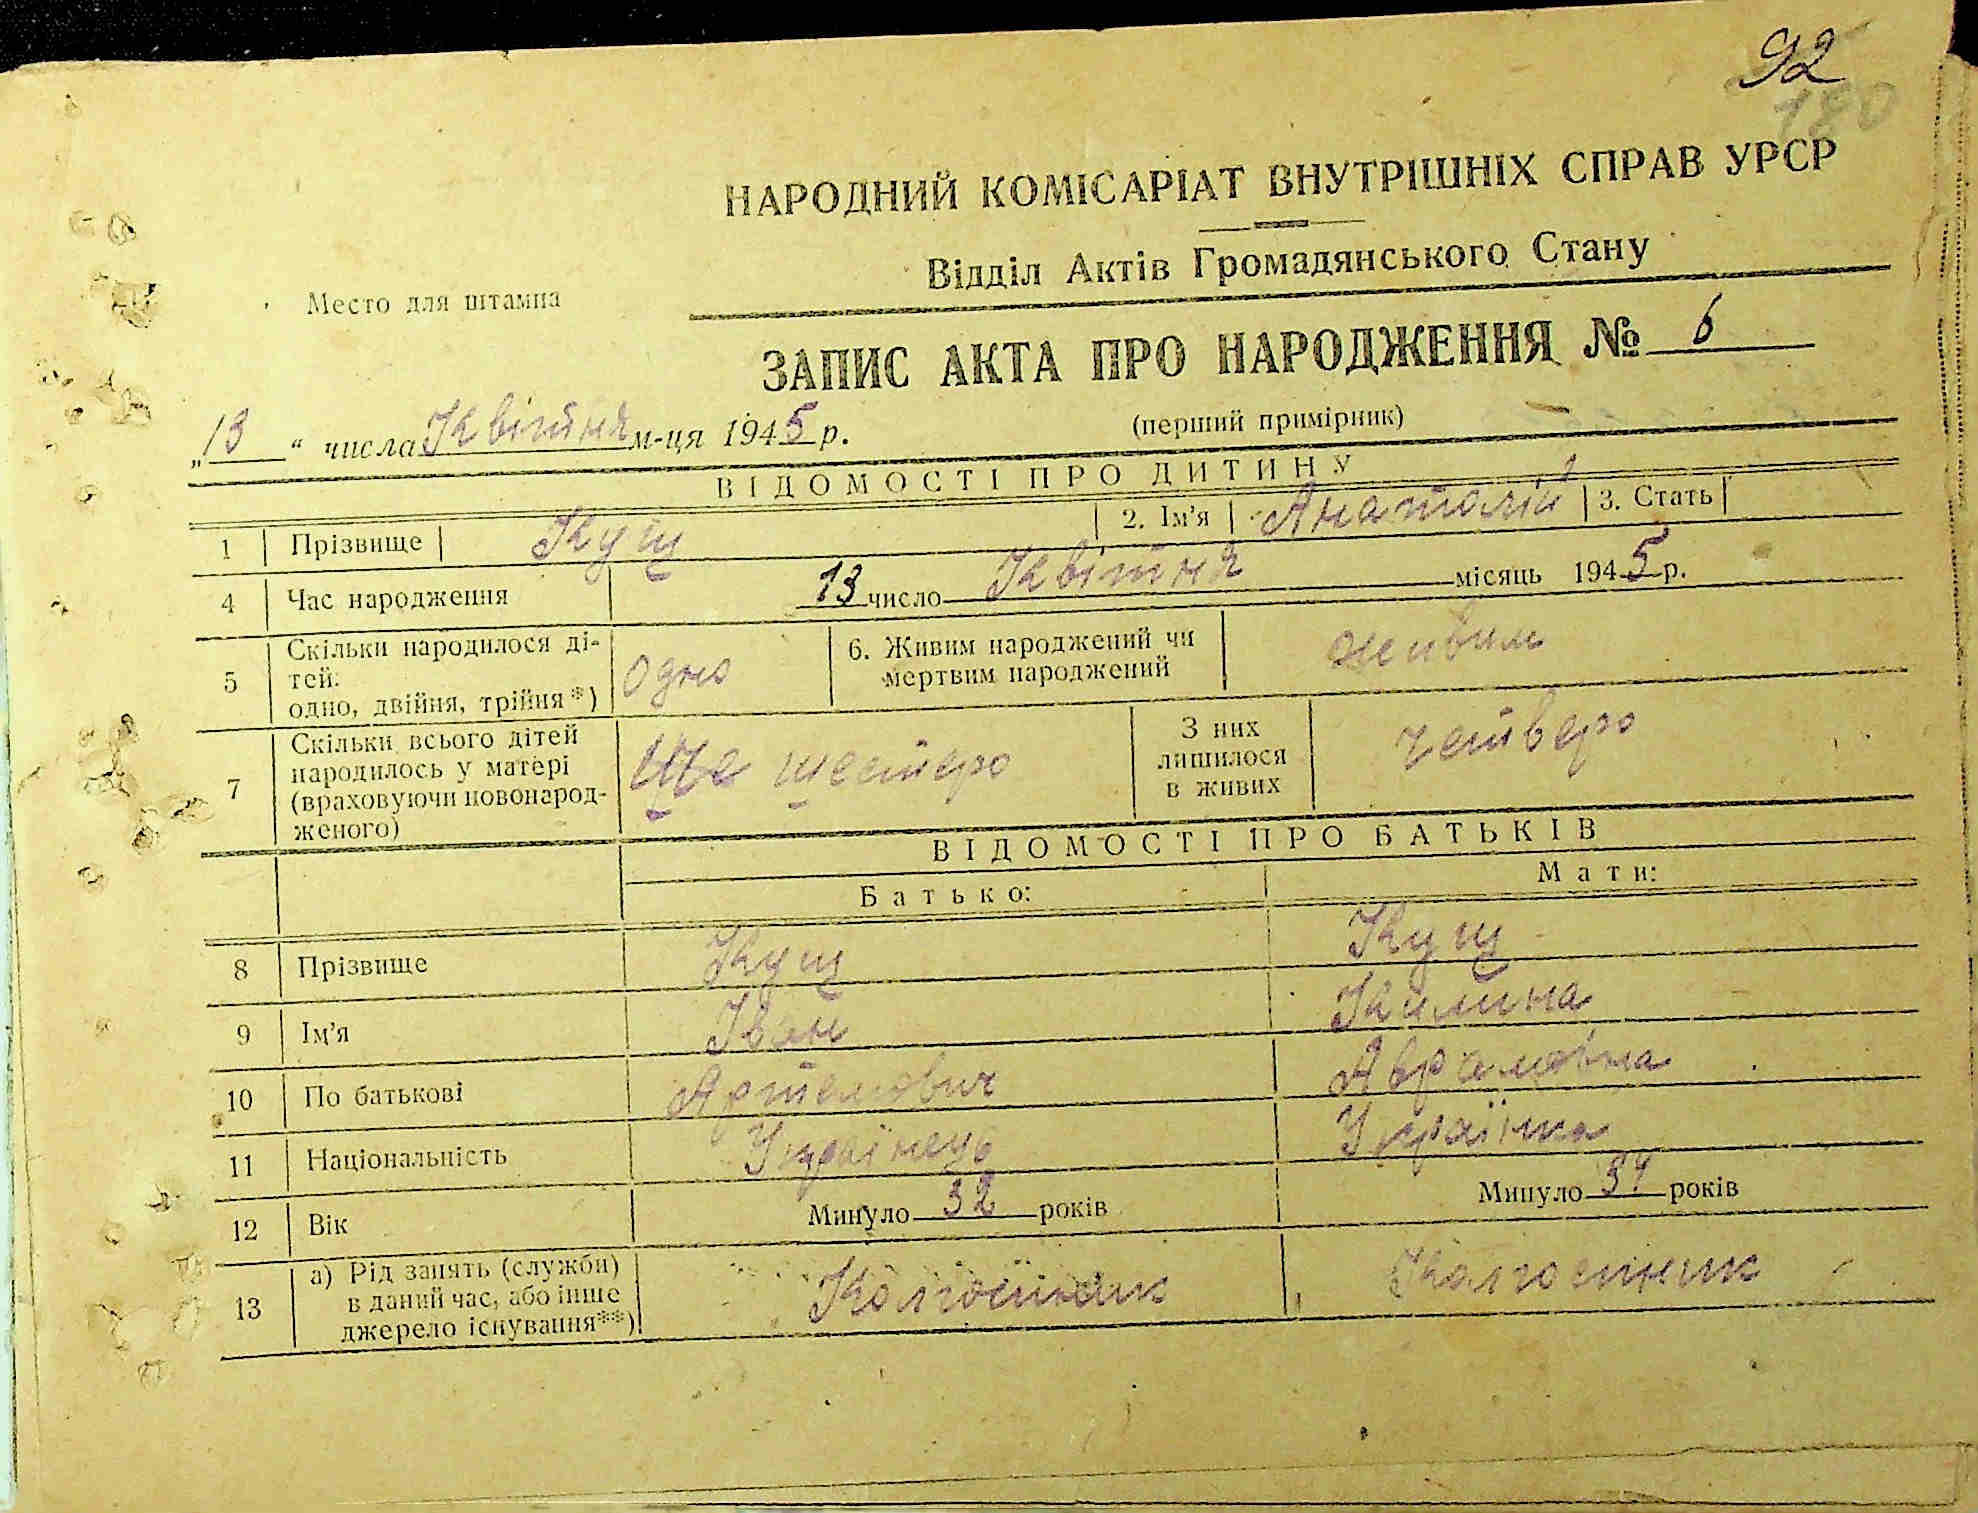 92
180
НАРОДНИЙ КОМІСАРІАТ ВНУТРІШНІХ СПРАВ УРСР
Відділ Актів Громадянського Стану
Место для штампа
ЗАПИС АКТА ПРО НАРОДЖЕННЯ № 6
„13“ числа Квітня м-ця 1945 р.
(перший примірник)
ВІДОМОСТІ ПРО ДИТИНУ
1 Прізвище Кущ 2. Ім'я Анатолій 3. Стать
4 Час народження 13 число Квітня місяць 1945 р.
5 Скільки народилося ді-
тей:
одно, двійня, трійня*) одно 6. Живим народжений чи
мертвим народжений живим
7 Скільки всього дітей
народилось у матері
(враховуючи новонарод-
женого) шестеро З них
лишилося
в живих четверо
ВІДОМОСТІ ПРО БАТЬКІВ
Батько: Мати:
8 Прізвище Кущ Кущ
9 Ім'я Іван Килина
10 По батькові Артемович Аврамівна
11 Національність Українець Українка
12 Вік Минуло 32 років Минуло 34 років
13 а) Рід занять (служби)
в даний час, або інше
джерело існування**) Колгоспник Колгоспник